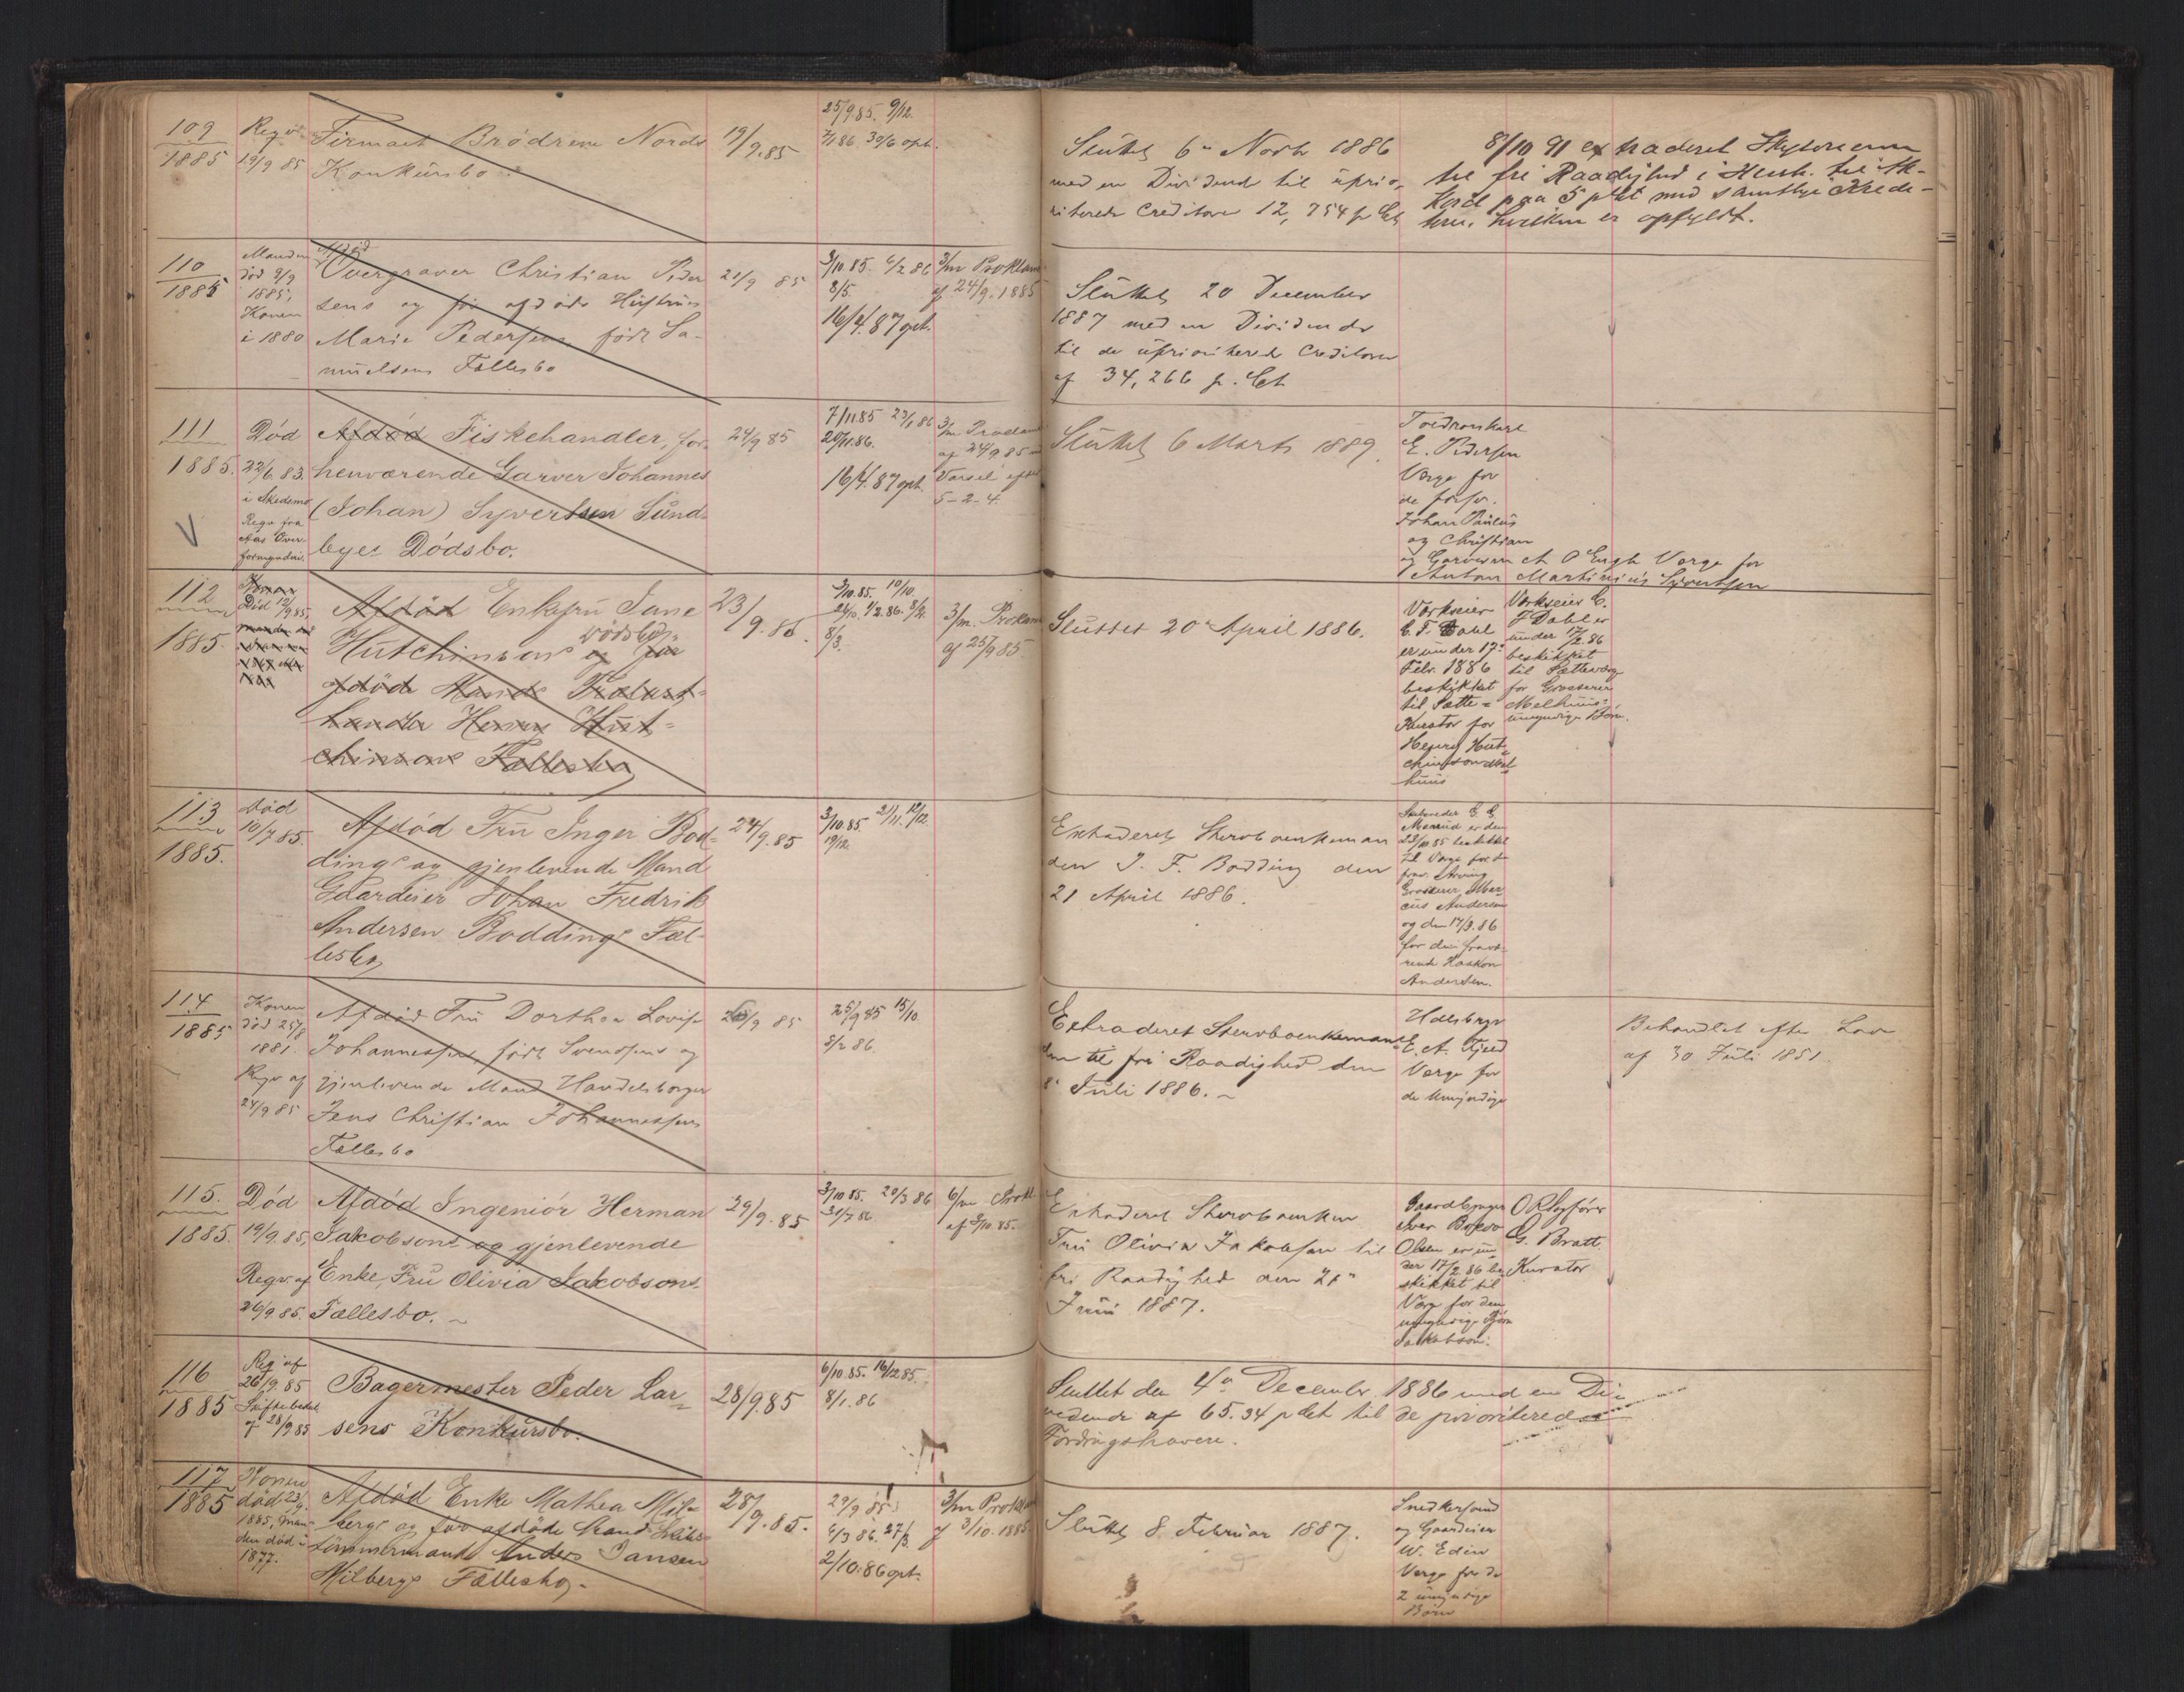 109
1885
Reqv
19/9 85
Firmaet Brødrene Nords
Konkursbo
19/9.85
25/9.85. 9/12.
7/1 86 30/6 opt.
Sluttet 6te Novbr 1886
med en Dividende til uprio-
riterede Creditorer 12,754 p Ct
8/10 91 extraderet Skyldnerne
til fri Raadighed i Henh. til Ak-
kord paa 5 pCt med samtlige Kredi-
torer, hvilken er opfyldt.
110
1885
Manden
død 9/9
1885,
Konen
i 1880
Afdød
Overgraver Christian Peder
sens og før afdøde Hustrus
Marie Pedersens født Sa-
muelsens Fællesbo
21/9 85
3/10.85. 6/2 86
8/5
16/4.87 opt.
3/m Proklama
af 24/9.1885
Sluttet 20 December
1887 med en Dividende
til de uprioriterede Creditorer
af 34,266 p. Ct
111
1885.
V
Død
22/6 83.
i Skedsmo
Reqv fra
Aas Over-
formynderi.
Afdød Fiskehandler, for-
henværende Garver Johannes
(Johan) Syvertsen Sund-
byes Dødsbo.
24/9 85
7/11 85 23/1 86
20/11.86.
16/4.87 opt.
3/m Proclama
af 24/9 85
Varsel efter
5-2-4.
Sluttet 6 Marts 1889.
E. Pedersen
Verge for
de
Johan Paulus
og Christian
og Garverm A O Engh Verge for
Anton Martinius Syvertsen
112
1885.
Konen
Død 12/9 85,
Afdød Enkefru Jane
Dødsbo
Hutchinsons og før
afdøde Mands Trælast-
handler Henry Hut-
chinsons Fællesbo
23/9.85.
3/10.85. 10/10.
24/10. 1/2.86. 8/2.
8/3.
3/m. Proklam
af 25/9 85.
Sluttet 20de April 1886.
Værkseier
C. F. Dahl
er under 17de
Febr. 1886
beskikket
til Sætte-
Kurator for
Henry Hut-
chinson
Værkseier C.
F Dahl er
under 17/2 86
beskikket
til Sætteverge
for Grosserer
Melhuus's
umyndige Børn.
113
1885.
Død
10/7 85.
Afdød Fru Inger Bod-
dings og gjenlevende Mand
Gaardeier Johan Fredrik
Andersen Boddings Fæl-
lesbo
24/9.85
3/10.85. 21/11. 12/12.
19/12.
Extraderet Stervboenkeman
den J. F. Bodding den
21 April 1886.
er den
23/10 85 beskikket
til Verge for d
frav. Arving
Grosserer Mar-
cus Andersen
og den 17/3.86
for den fravæ-
rende Haakon
Andersen.
114
1885
Konen
død 25/8
1881.
Reqv af
24/9 85
Afdød Fru Dorthea Lovise
Johannessens, født Svendsens og
gjenlevende Mand Handelsborger
Jens Christian Johannessens
Fællesbo
26/9 85
25/9 85 15/10.
8/2 86.
Extraderet Stervboenkeman-
den til fri Raadighed den
8' Juli 1886.
Hdlsbrgr
E. A. Fjeld
Verge for
de Umyndige
Behandlet efter Lov
af 30 Juli 1851.
115.
1885.
Død
19/9.85,
Reqv. af
26/9.85.
Afdød Ingeniør Herman
Jakobsons og gjenlevende
Enke, Fru Olivia Jakobsons
Fællesbo.
29/9.85
3/10 85. 20/3 86
31/7 86
6/m Prokl
af 3/10.85.
Extraderet Stervboenken
Fru Olivia Jakobson til
fri Raadighed den 21de
Juni 1887.
Gaardbruger
Iver
Olsen er un
der 17/2 86 be
skikket til
Verge for den
umyndige Bjørn
Jakobson.
ORSagfører
G. Bratt
Kurator
116
1885
Reqv af
26/9.85
Skiftebeslut
af 28/9 85
Bagermester Peder Lar-
sens Konkursbo.
28/9.85
6/10.85. 16/12.85.
8/1.86
Sluttet den 4de December 1886 med en Di-
vidende af 65.34 pCt til de prioriterede
Fordringshavere.
117
1885
Konen
død 23/9.
1885, Man-
den død i
1877.
Afdød Enke Mathea Mil-
bergs og før afdøde Mand Skibs-
tømmermand Anders Jansen
Milbergs Fællesbo.
28/9.85.
29/9 85
6/3 86. 27/3.
2/10.86 opt.
3/m Prokla
af 3/10.1885.
Sluttet 8. Februar 1887.
Snedkersvend
og Gaardeier
W. Edin
Verge for de
2 umyndige
Børn